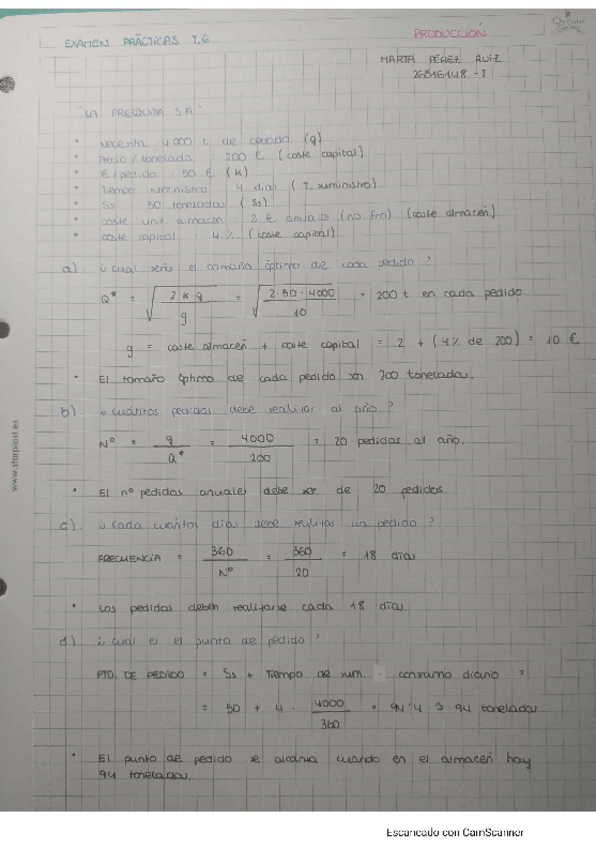 EXAMEN PRÁCTICAS T.6
PRODUCCIÓN
MARTA PÉREZ RUIZ
26516148-T
"LA FRESQUITA S.A."
• Necesita 4000 t de cebada (q)
• Precio / tonelada 200 € (coste capital)
• €/pedido: 50 € (K)
• Tiempo suministro 4 días (T. suministro)
• SS 50 toneladas (Ss)
• coste unit almacén: 2 € anuales (no fro) (coste almacén)
• coste capital: 4 % (coste capital)
a) ¿cual sería el tamaño óptimo de cada pedido?
Q* = √ 2 K·q / g = √ 2·50·4000 / 10 = 200 t en cada pedido
g = coste almacén + coste capital = 2 + (4% de 200) = 10 €
• El tamaño óptimo de cada pedido son 200 toneladas.
b) ¿cuántos pedidos debe realizar al año?
Nº = q / Q* = 4000 / 200 = 20 pedidos al año.
• El nº pedidos anuales debe ser de 20 pedidos.
c) ¿cada cuántos días debe realizar un pedido?
FRECUENCIA = 360 / Nº = 360 / 20 = 18 días
• Los pedidos deben realizarse cada 18 días
d) ¿cual es el punto de pedido?
PTO. DE PEDIDO = Ss + Tiempo de sum. · consumo diario =
= 50 + 4 · 4000 / 360 = 94'4 ≅ 94 toneladas
• El punto de pedido se alcanza cuando en el almacén hay
94 toneladas.
www.starplast.es
Escaneado con CamScanner